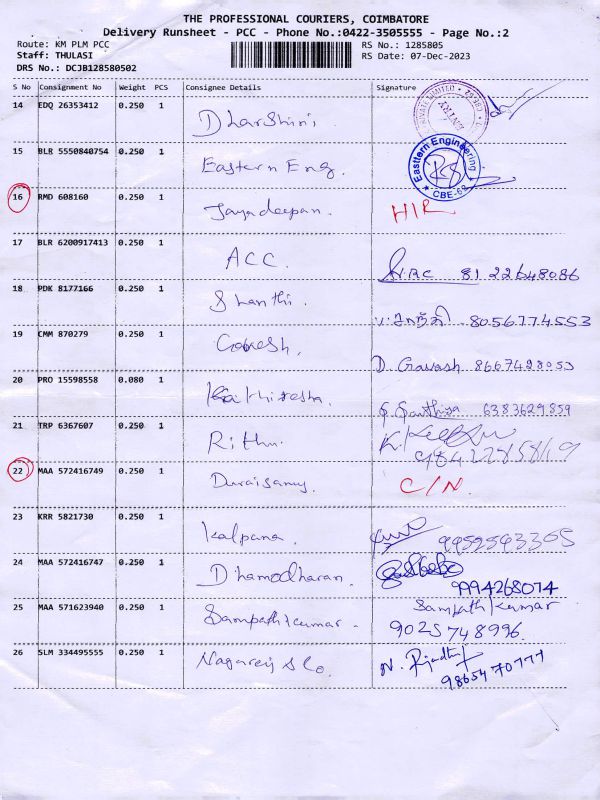 THE PROFESSIONAL COURIERS, COIMBATORE
Delivery Runsheet - PCC - Phone No.:0422-3505555 - Page No.:2
Route: KM PLM PCC RS No.: 1285805
Staff: THULASI RS Date: 07-Dec-2023
DRS No.: DCJB128580502
S No Consignment No Weight PCS Consignee Details Signature
14 EDQ 26353412 0.250 1 Dharshini
15 BLR 5550840754 0.250 1 Eastern Eng. Easttern Engineering CBE-62
16 RMD 608160 0.250 1 Jayadeepan. HIR
17 BLR 6200917413 0.250 1 ACC. 81 22648086
18 PDK 8177166 0.250 1 Shanthi. சாந்தி - 8056774553
19 CMM 870279 0.250 1 D. 8667428053
20 PRO 15598558 0.080 1 6383629859
21 TRP 6367607 0.250 1 Rithu. 9842285819
22 MAA 572416749 0.250 1 Duraisamy. C/N.
23 KRR 5821730 0.250 1 Kalpana. 9952593355
24 MAA 572416747 0.250 1 Dhamodharan. 9994268074
25 MAA 571623940 0.250 1 Sampathkumar - Sampath Kumar
9025748996.
26 SLM 334495555 0.250 1 N.
9865470777